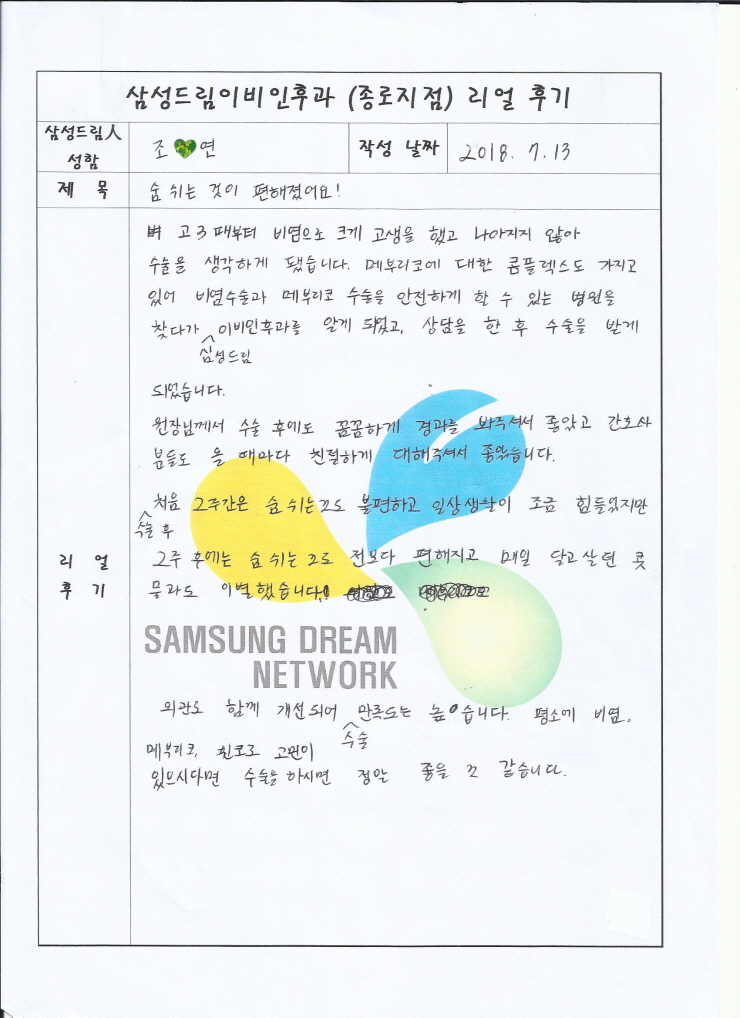 삼성드림이비인후과 (종로지점) 리얼 후기
삼성드림人 성함
조💚연
작성 날짜
2018. 7. 13
제 목
숨 쉬는 것이 편해졌어요!
리 얼
후 기
고3 때부터 비염으로 크게 고생을 했고 나아지지 않아
수술을 생각하게 됐습니다. 메부리코에 대한 콤플렉스도 가지고
있어 비염수술과 메부리코 수술을 안전하게 할 수 있는 병원을
찾다가 삼성드림 이비인후과를 알게 되었고, 상담을 한 후 수술을 받게
되었습니다.
원장님께서 수술 후에도 꼼꼼하게 경과를 봐주셔서 좋았고 간호사
분들도 올 때마다 친절하게 대해주셔서 좋았습니다.
수술 후 처음 2주간은 숨 쉬는 것도 불편하고 일상생활이 조금 힘들었지만
2주 후에는 숨 쉬는 것도 전보다 편해지고 매일 달고 살던 콧
물과도 이별했습니다!
SAMSUNG DREAM
NETWORK
외관도 함께 개선되어 수술 만족도는 높습니다. 평소에 비염,
메부리코, 휜코로 고민이
있으시다면 수술을 하시면 정말 좋을 것 같습니다.